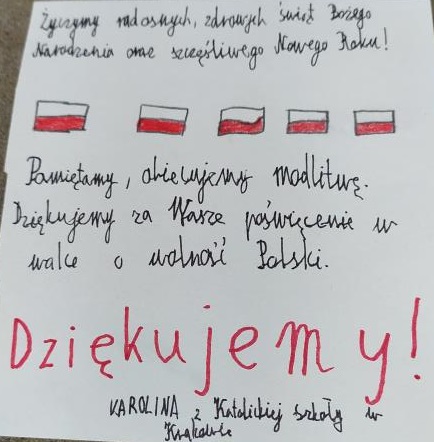 Życzymy radosnych, zdrowych świąt Bożego
Narodzenia oraz szczęśliwego Nowego Roku!
Pamiętamy, obiecujemy modlitwę.
Dziękujemy za Wasze poświęcenie w
walce o wolność Polski.
Dziękujemy!
KAROLINA z Katolickiej szkoły w
Krakowie